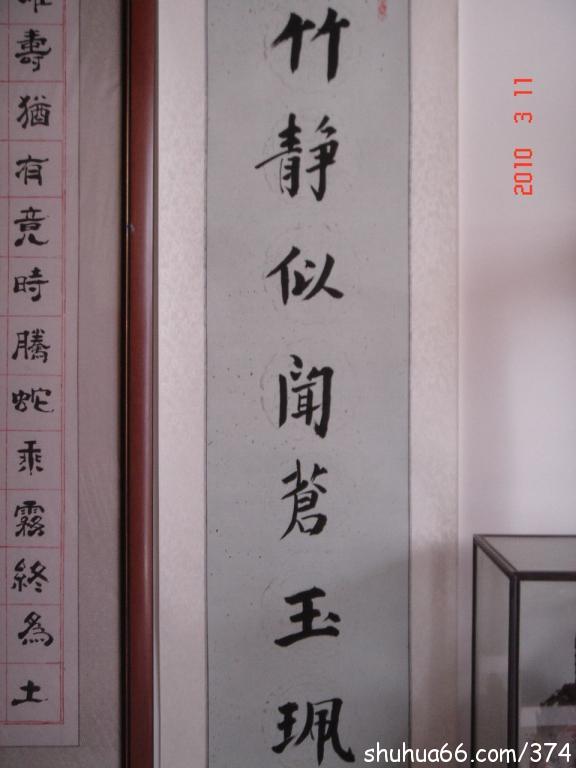 竹静似聞蒼玉珮
壽猶有竟時騰蛇乘霧終為土
2010 3 11
shuhua66.com/374